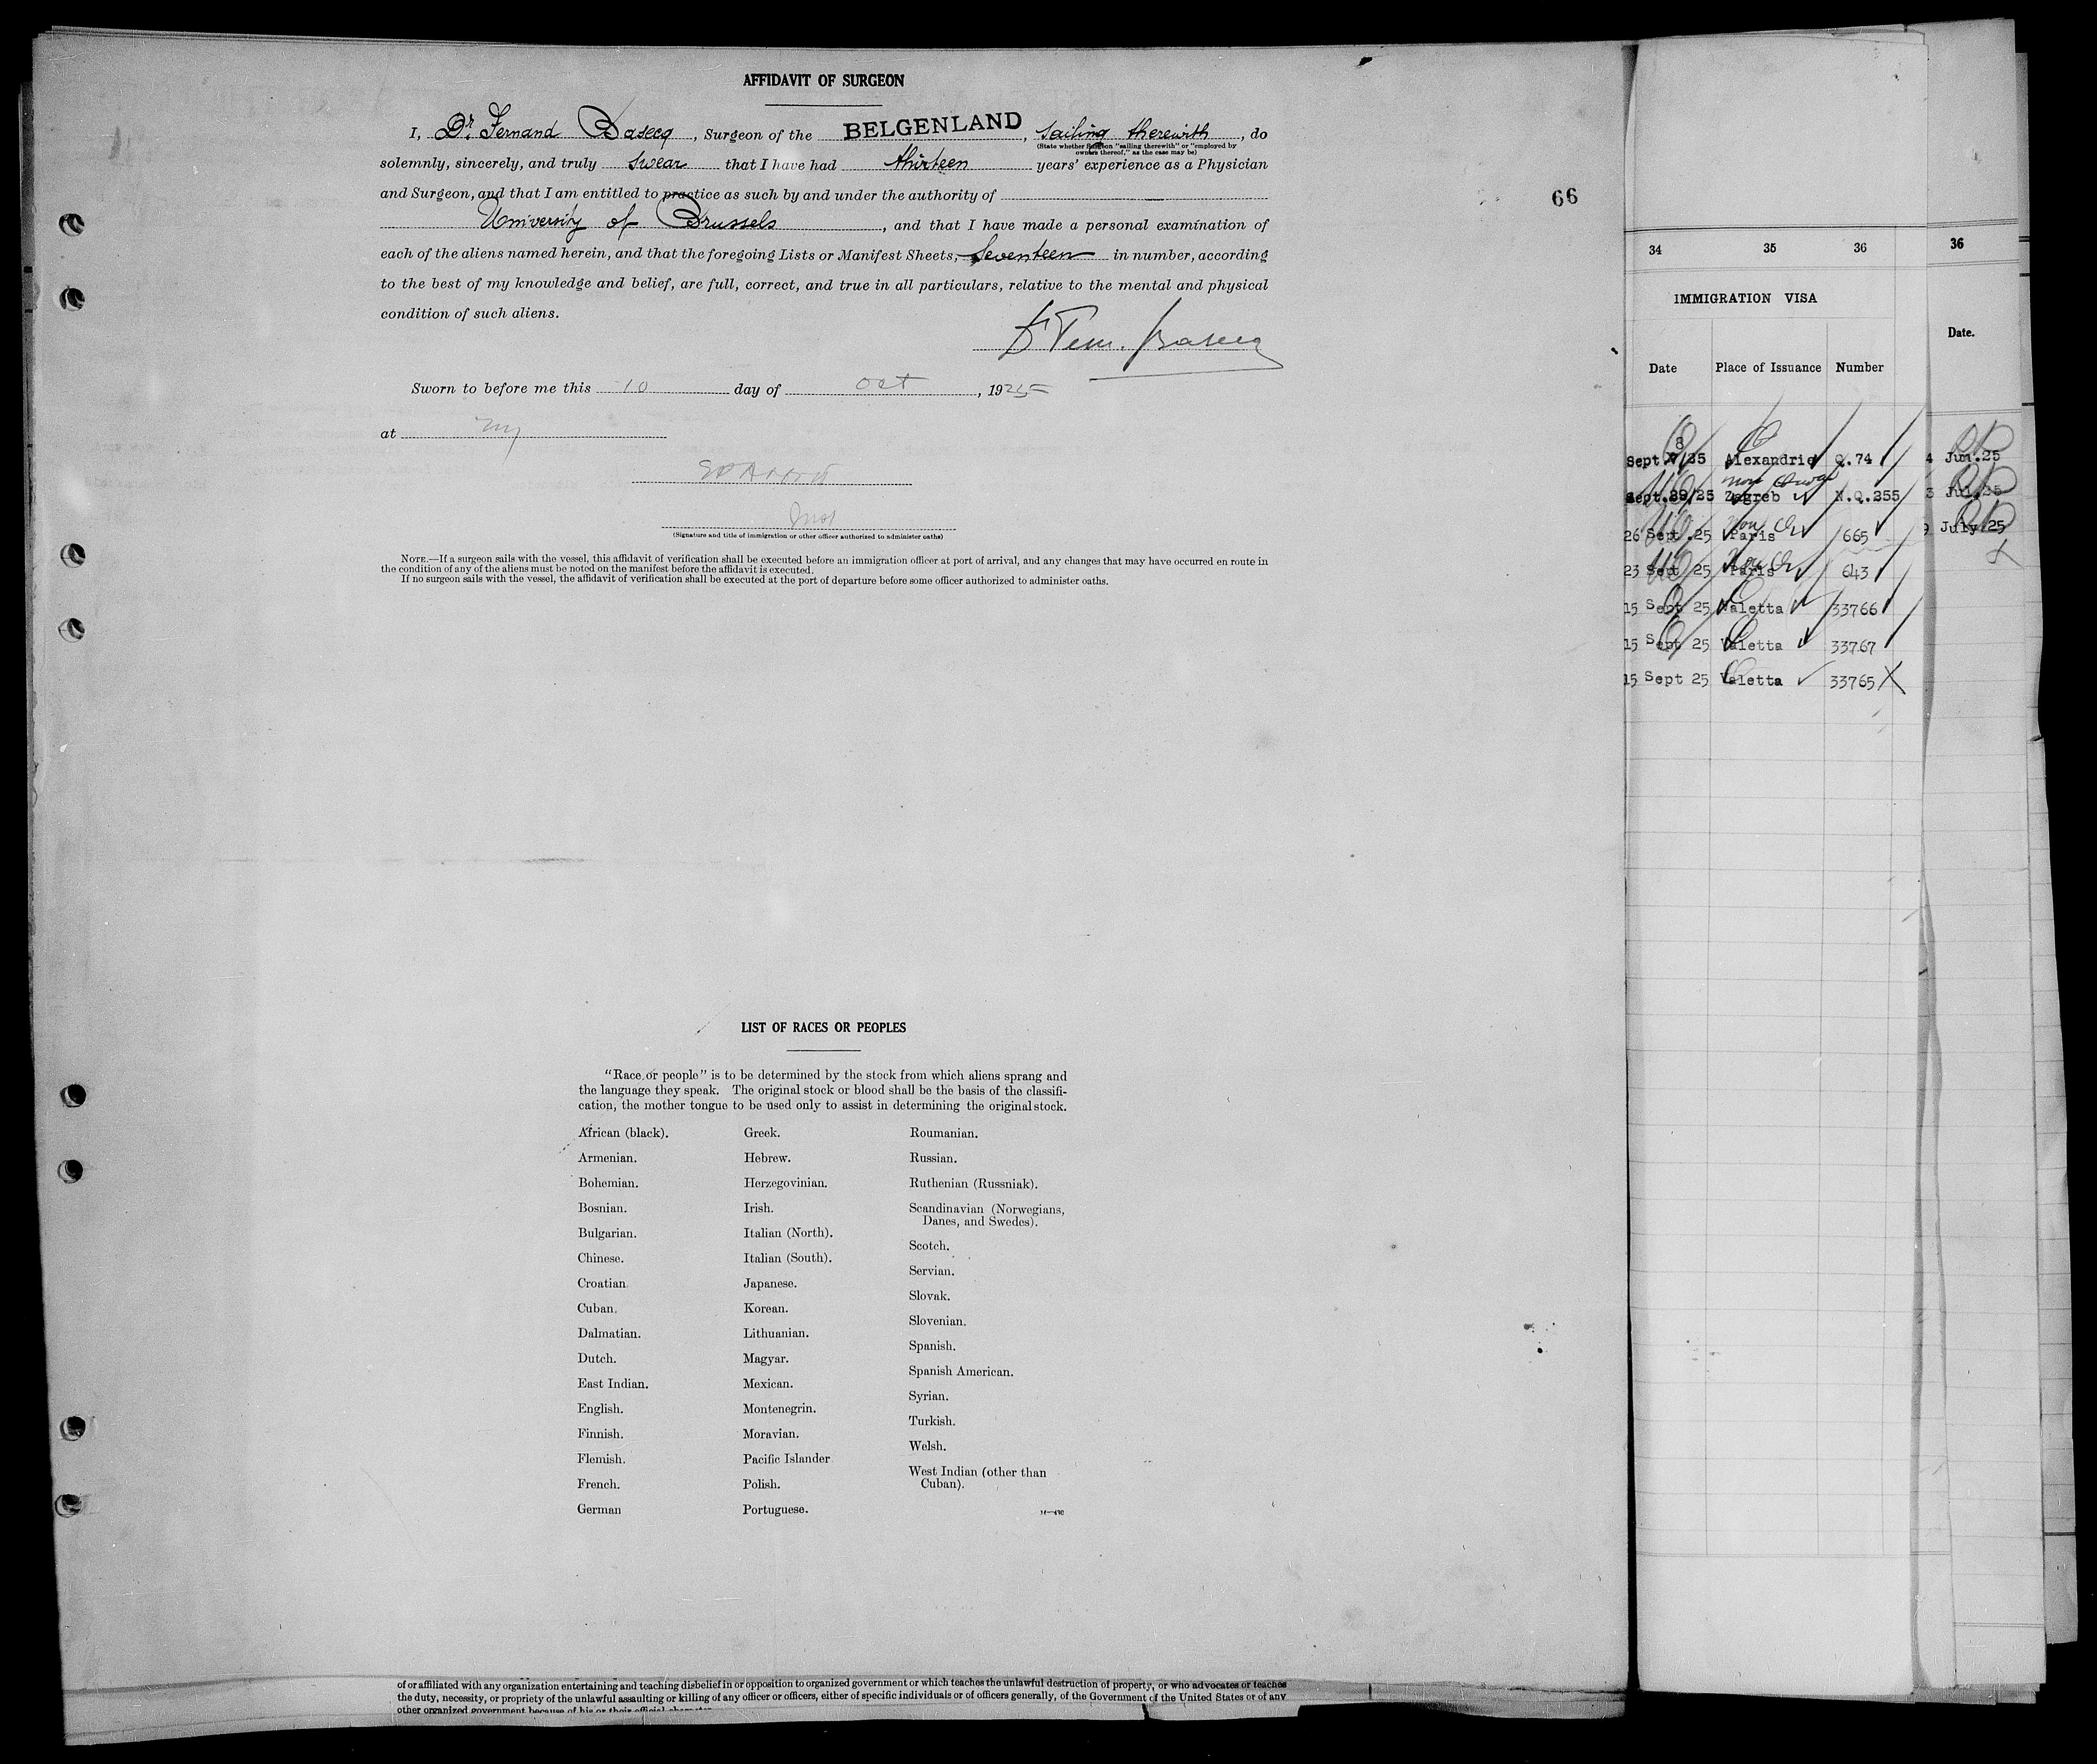 AFFIDAVIT OF SURGEON
I, Dr. Fernand Basecq, Surgeon of the BELGENLAND, sailing therewith, do
(State whether Surgeon "sailing therewith" or "employed by
owners thereof," as the case may be)
solemnly, sincerely, and truly swear that I have had thirteen years' experience as a Physician
and Surgeon, and that I am entitled to practice as such by and under the authority of
University of Brussels, and that I have made a personal examination of
each of the aliens named herein, and that the foregoing Lists or Manifest Sheets, Seventeen in number, according
to the best of my knowledge and belief, are full, correct, and true in all particulars, relative to the mental and physical
condition of such aliens.
Sworn to before me this 10 day of Oct, 1925
at NY
(Signature and title of immigration or other officer authorized to administer oaths)
NOTE.—If a surgeon sails with the vessel, this affidavit of verification shall be executed before an immigration officer at port of arrival, and any changes that may have occurred en route in
the condition of any of the aliens must be noted on the manifest before the affidavit is executed.
If no surgeon sails with the vessel, the affidavit of verification shall be executed at the port of departure before some officer authorized to administer oaths.
66
LIST OF RACES OR PEOPLES
"Race or people" is to be determined by the stock from which aliens sprang and
the language they speak. The original stock or blood shall be the basis of the classifi-
cation, the mother tongue to be used only to assist in determining the original stock.
African (black).
Armenian.
Bohemian.
Bosnian.
Bulgarian.
Chinese.
Croatian.
Cuban.
Dalmatian.
Dutch.
East Indian.
English.
Finnish.
Flemish.
French.
German
Greek.
Hebrew.
Herzegovinian.
Irish.
Italian (North).
Italian (South).
Japanese.
Korean.
Lithuanian.
Magyar.
Mexican.
Montenegrin.
Moravian.
Pacific Islander
Polish.
Portuguese.
Roumanian.
Russian.
Ruthenian (Russniak).
Scandinavian (Norwegians,
Danes, and Swedes).
Scotch.
Servian.
Slovak.
Slovenian.
Spanish.
Spanish American.
Syrian.
Turkish.
Welsh.
West Indian (other than
Cuban).
of or affiliated with any organization entertaining and teaching disbelief in or opposition to organized government or which teaches the unlawful destruction of property, or who advocates or teaches
the duty, necessity, or propriety of the unlawful assaulting or killing of any officer or officers, either of specific individuals or of officers generally, of the Government of the United States or of any
other organized government because of his or their official character
34 35 36
IMMIGRATION VISA
Date Place of Issuance Number
Alexandrie Q.74
Sept.29/25 Zagreb N.Q.255
26 Sept.25 Paris 665
23 Sept 25 Paris 643
15 Sept 25 Valetta 33766
15 Sept 25 Valetta 33767
15 Sept 25 Valetta 33765
36
Date.
4 Jun.25
3 Jul.25
9 July.25